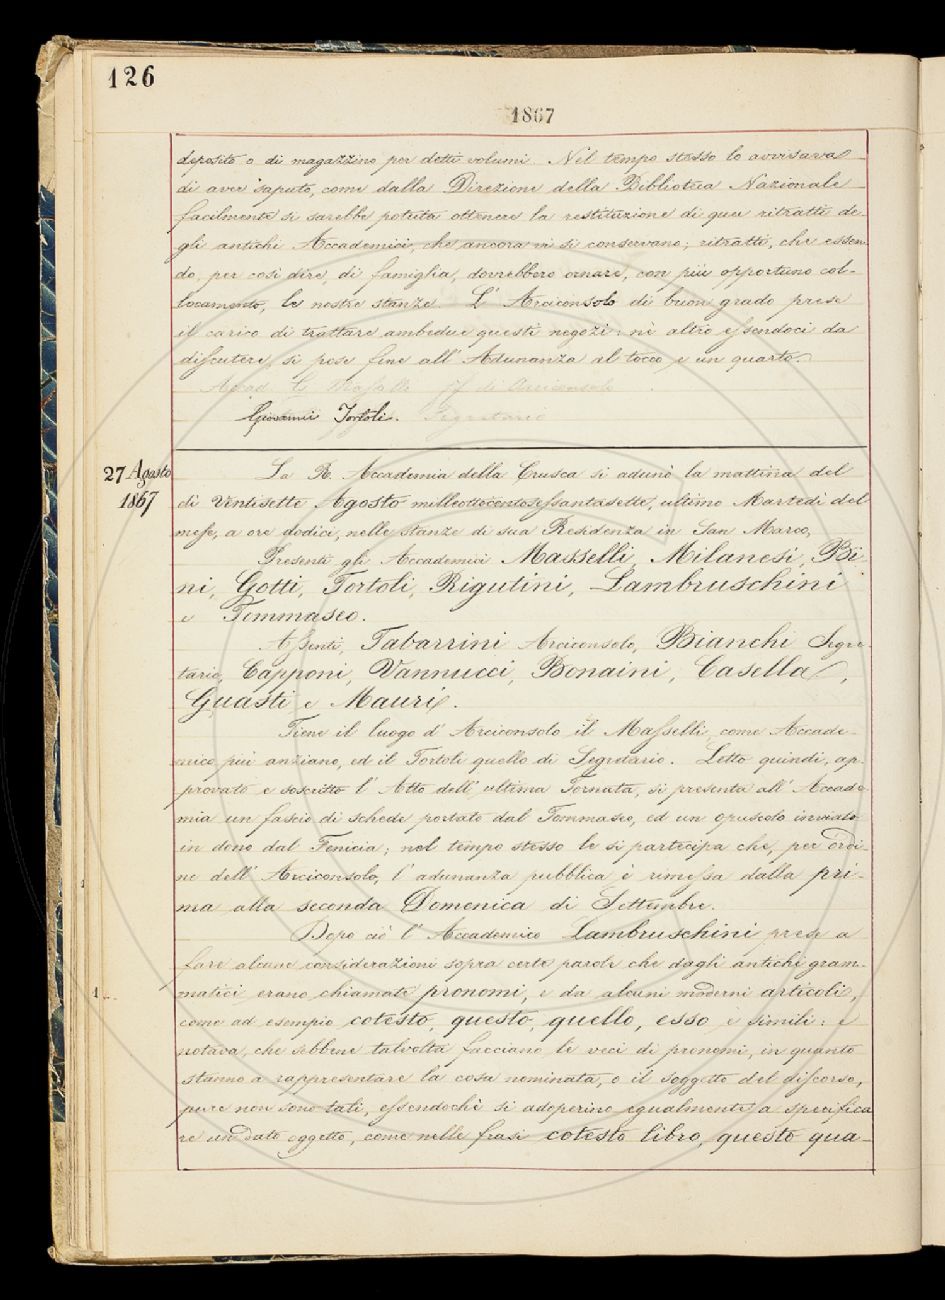 126
1867
deposito o di magazzino per detti volumi. Nel tempo stesso lo avvisava
di aver saputo, come dalla Direzione della Biblioteca Nazionale
facilmente si sarebbe potuta ottenere la restituzione di quei ritratti de-
gli antichi Accademici, che ancora vi si conservano; ritratti, che essen-
do, per così dire, di famiglia, dovrebbero ornare, con più opportuno col-
locamento, le nostre stanze. L' Arciconsolo di buon grado prese
il carico di trattare ambedue questi negozi: nè altro essendoci da
discutere, si pose fine all' Adunanza al tocco e un quarto.
Accad. G. Masselli ff. di Arciconsolo
Giovanni Tortoli. Segretario
27 Agosto
1867
La R. Accademia della Crusca si adunò la mattina del
dì Ventisette Agosto milleottocentosessantasette, ultimo Martedì del
mese, a ore dodici, nelle stanze di sua Residenza in San Marco,
Presenti gli Accademici Masselli, Milanesi, Bi-
ni, Gotti, Tortoli, Rigutini, Lambruschini
e Tommaseo.
Assenti, Tabarrini Arciconsolo, Bianchi Segre-
tario, Capponi, Vannucci, Bonaini, Casella,
Guasti e Mauri.
Tiene il luogo d' Arciconsolo il Masselli, come Accade-
mico più anziano, ed il Tortoli quello di Segretario. Letto quindi, ap-
provato e soscritto l' Atto dell' ultima Tornata, si presenta all' Accade-
mia un fascio di schede portato dal Tommaseo, ed un opuscolo inviato
in dono dal Fenicia; nel tempo stesso le si partecipa che, per ordi-
ne dell' Arciconsolo, l' adunanza pubblica è rimessa dalla pri-
ma alla seconda Domenica di Settembre.
Dopo ciò l' Accademico Lambruschini prese a
fare alcune considerazioni sopra certe parole che dagli antichi gram-
matici erano chiamate pronomi, e da alcuni moderni articoli,
come ad esempio cotesto, questo, quello, esso e simili: e
notava, che sebbene talvolta facciano le veci di pronomi, in quanto
stanno a rappresentare la cosa nominata, o il soggetto del discorso,
pure non sono tali, essendochè si adoperino egualmente a specifica-
re un dato oggetto, come nelle frasi cotesto libro, questo qua-